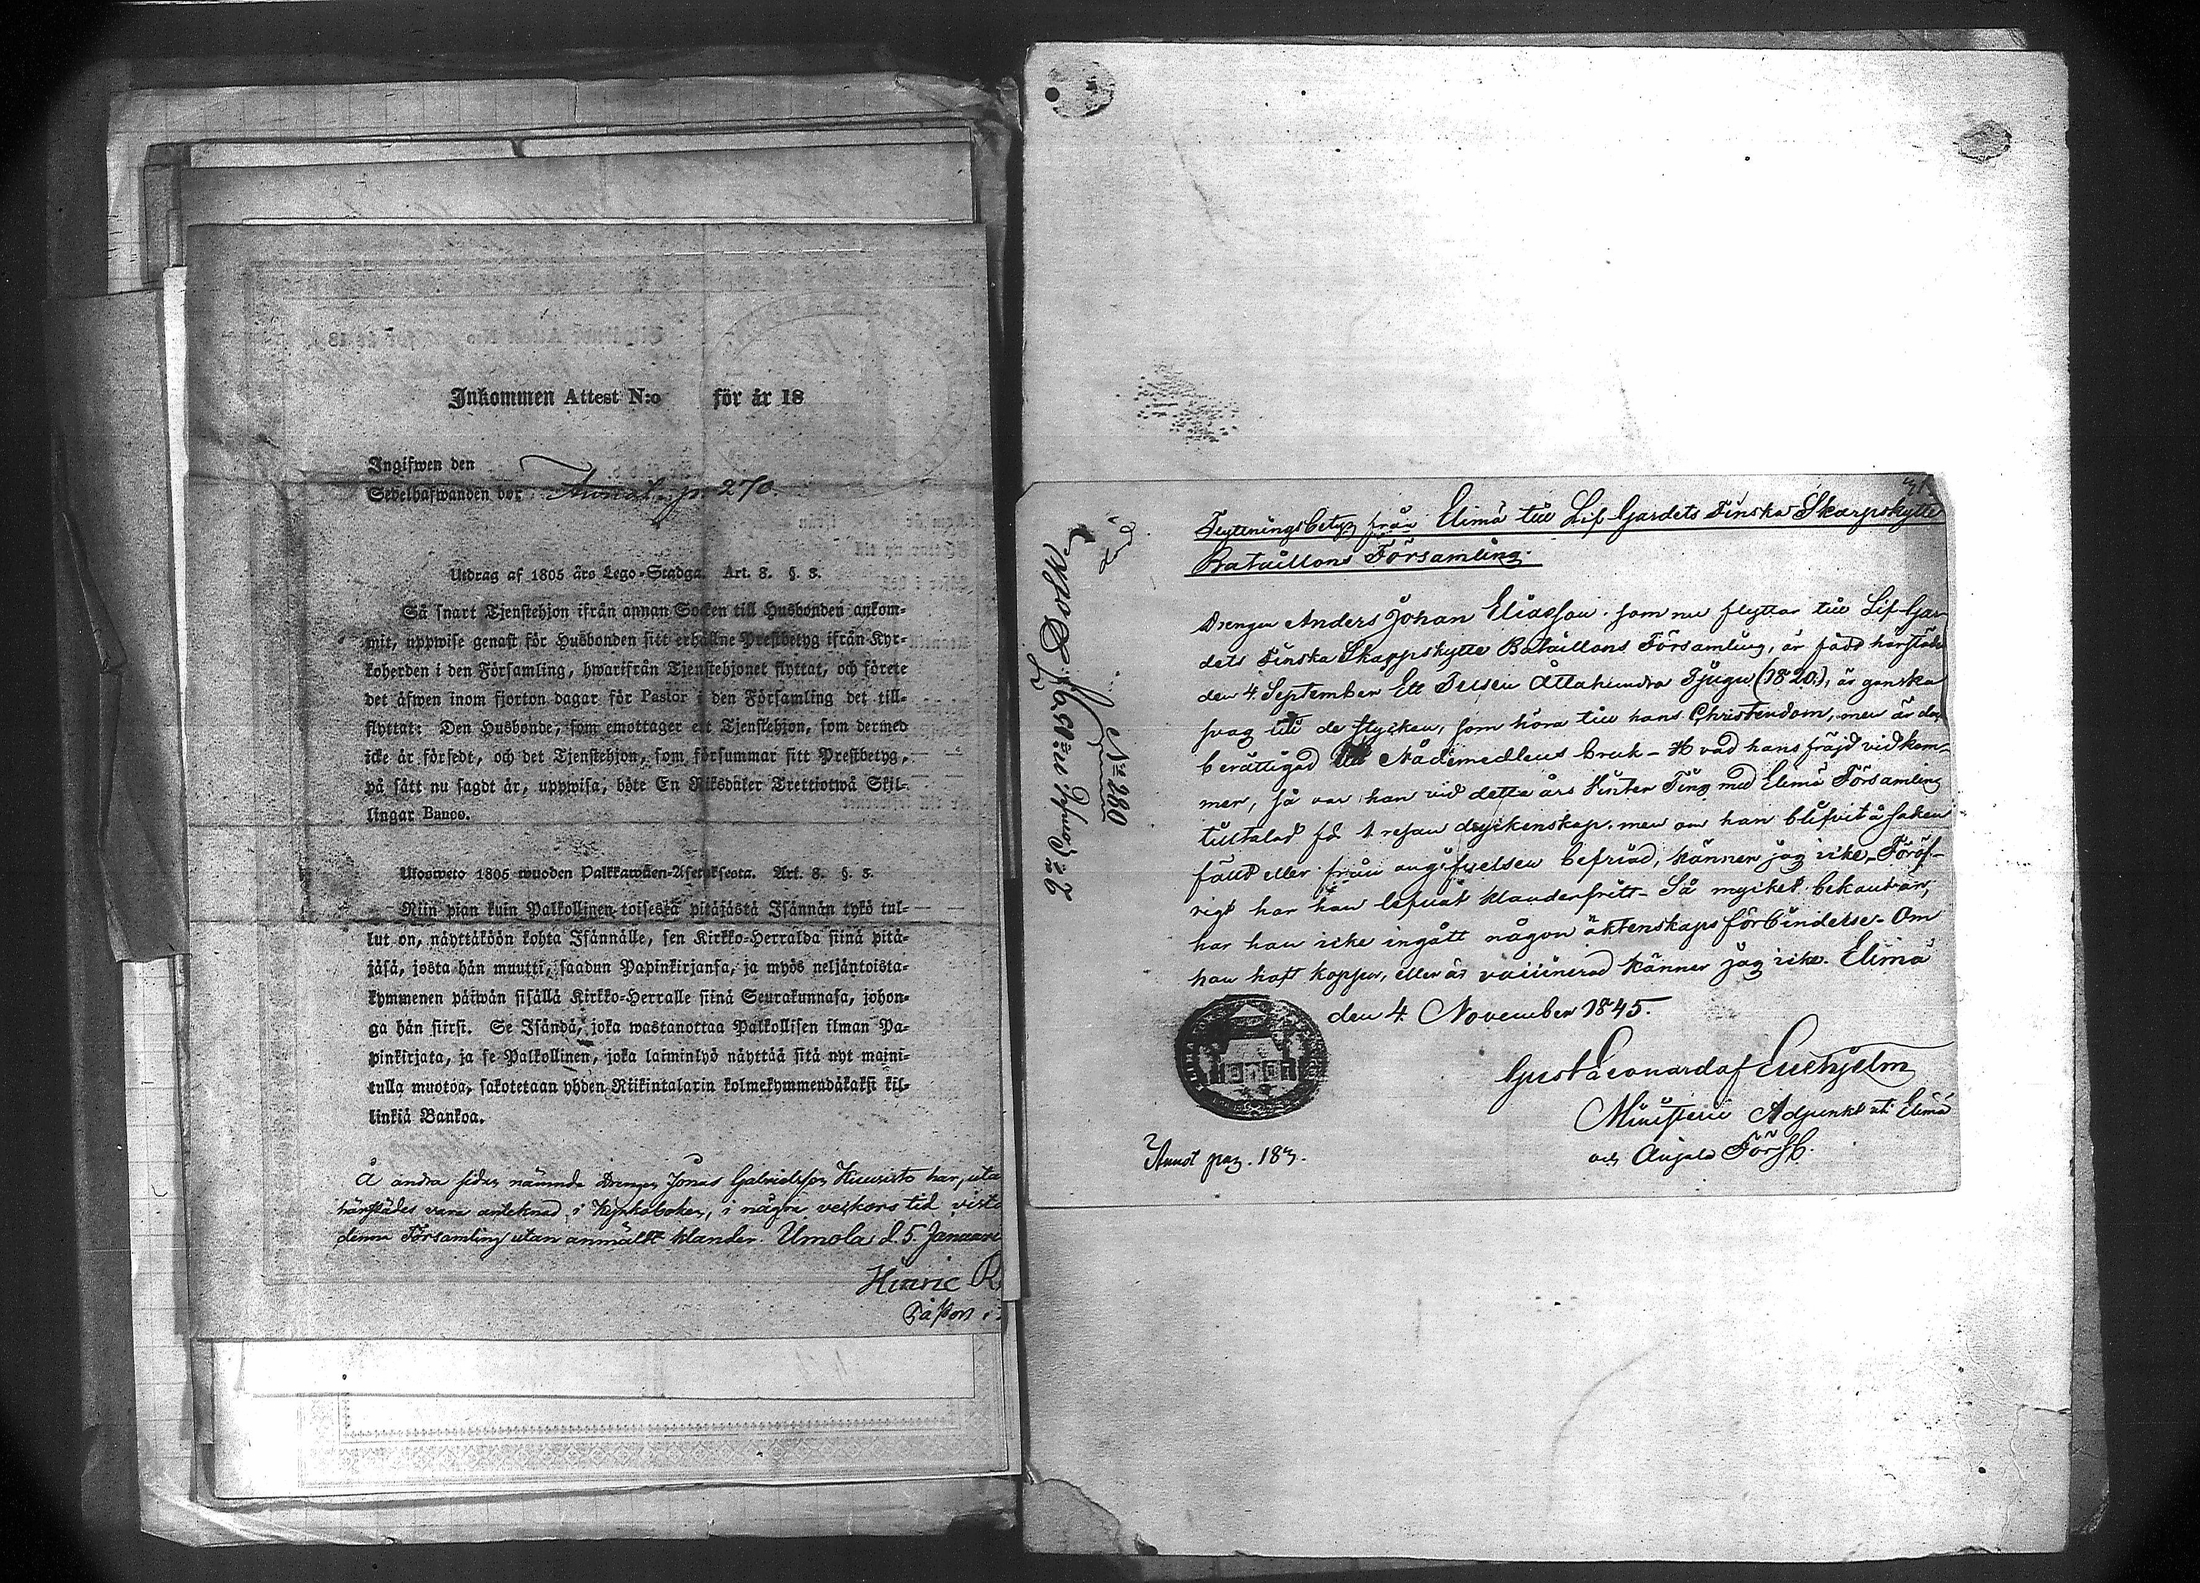 Inkommen Attest N:o för år 18
Ingifwen den
Sedelhafwanden bor Annot. p. 270.
Utdrag af 1805 års Lego-Stadga. Art. 3. §. 3.
Så snart Tjenstehjon ifrån annan Socken till Husbonden ankom-
mit, uppwise genast för Husbonden sitt erhållne Prestbetyg ifrån Kyr-
koherden i den Församling, hwarifrån Tjenstehjonet flyttat, och förete
det äfwen inom fjorton dagar för Pastor i den Församling det till-
flyttat: Den Husbonde, som emottager ett Tjenstehjon, som dermed
icke är försedt, och det Tjenstehjon, som försummar sitt Prestbetyg,
på sätt nu sagdt är, uppwisa, böte En Riksdaler Trettiotwå Skil-
lingar Banco.
Ulosweto 1805 wuoden Palkkawäen-Asetuksesta. Art. 3. §. 3.
Niin pian kuin Palkollinen toisesta pitäjästä Isännän tykö tul-
lut on, näyttäköön kohta Isännälle, sen Kirkko-Herralda siinä pitä-
jäsä, josta hän muutti, saadun Papinkirjansa, ja myös neljäntoista-
kymmenen päiwän sisällä Kirkko-Herralle siinä Seurakunnasa, johon-
ga hän siirsi. Se Isändä, joka wastanottaa Palkollisen ilman Pa-
pinkirjata, ja se Palkollinen, joka laiminlyö näyttää sitä nyt maini-
tulla muotoa, sakotetaan yhden Riikintalarin kolmekymmendäkaksi kil-
linkiä Bankoa.
Å andra sidan nämnde Drengen Jonas Gabrielsson Kuusisto har, uta
härstädes vara anteknad i Kyrkoboken, i några veckors tid vista
denna Församling utan anmäldt klander. Umola d. 5. Januari
Henric R
Pastor i
Flyttningsbetyg från Elimä till Lif-Gardets Finska Skarpskytte
Bataillons Församling.
Drengen Anders Johan Eliasson som nu flyttar till Lif-Gar-
dets Finska Skarpskytte Bataillons Församling, är född härstädes
den 4 September Ett Tusen Åttahundra Tjugu (1820), är ganska
svag uti de stycken, som höra till hans Christendom, men är dock
berättigad till Nådemedlens bruk - Hvad hans fräjd vidkom-
mer, så var han vid detta års Vinter Ting med Elimä Församling
tilltalad för 1 resan dryckenskap, men om han blifvit å saken
fälld eller från angifvelsen befriad, känner jag icke. Föröf-
rigt har han lefvat klanderfritt - Så mycket bekant är,
har han icke ingått någon äktenskaps förbindelse. Om
han haft koppor, eller är vaccinerad känner jag icke. Elimä
den 4 November 1845.
Gust. Leonard af Enehjelm
Ministerii Adjunkt uti Elimä
och Anjala Förs.
Annot pag. 183.
No 280